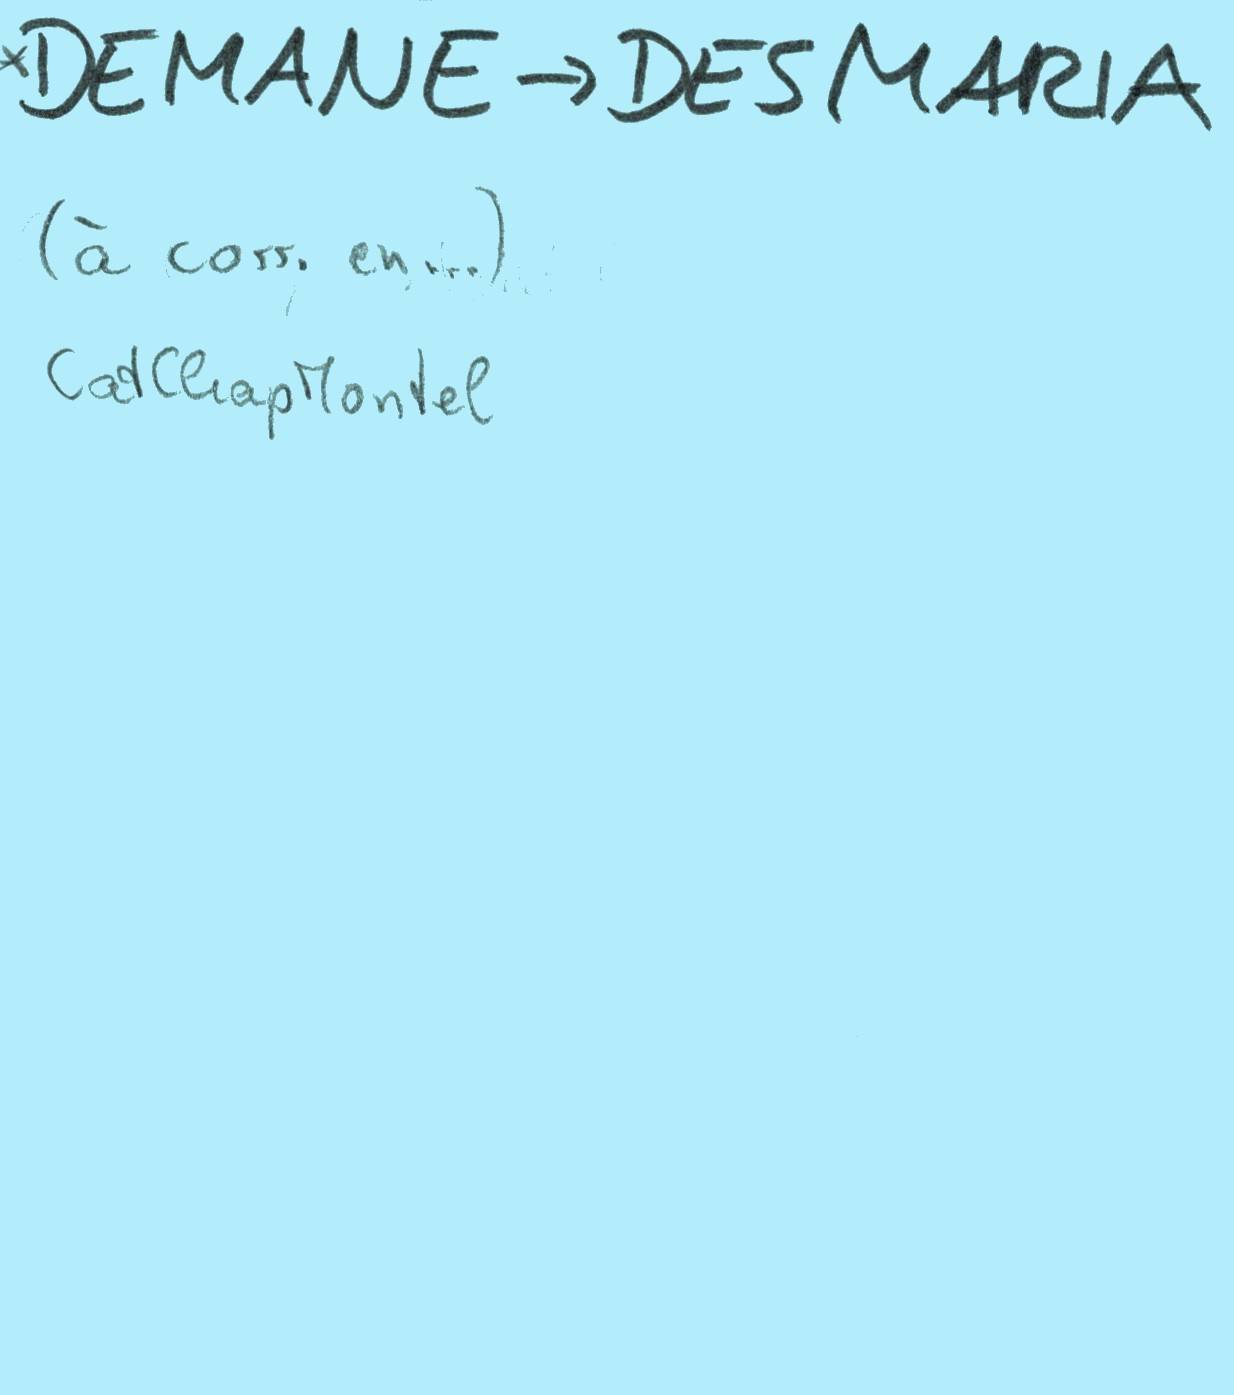 *DEMANE → DESMARIA
(à corr. en....)
CatChapMontel